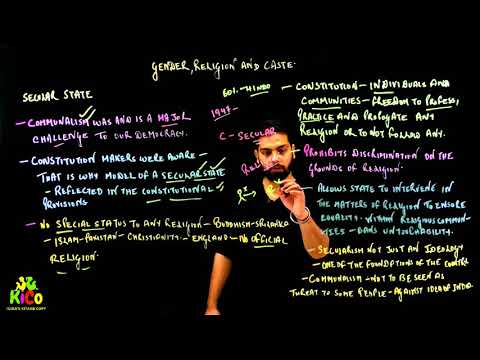 GENDER, RELIGION AND CASTE
SECULAR STATE
- COMMUNALISM WAS AND IS A MAJOR
CHALLENGE TO OUR DEMOCRACY.
- CONSTITUTION MAKERS WERE AWARE -
THAT IS WHY MODEL OF A SECULAR STATE
- REFLECTED IN THE CONSTITUTIONAL
PROVISIONS
- NO SPECIAL STATUS TO ANY RELIGION - BUDDHISM - SRILANKA
- ISLAM - PAKISTAN - CHRISTIANITY - ENGLAND - NO OFFICIAL
RELIGION.
80% - HINDU
1947 -
C - SECULAR
REL
- CONSTITUTION - INDIVIDUALS AND
COMMUNITIES - FREEDOM TO PROFESS,
PRACTICE AND PROPAGATE ANY
RELIGION OR TO NOT FOLLOW ANY.
- PROHIBITS DISCRIMINATION ON THE
GROUNDS OF RELIGION.
- ALLOWS STATE TO INTERVENE IN
THE MATTERS OF RELIGION TO ENSURE
EQUALITY - WITHIN RELIGIOUS COMMUN-
ITIES - BANS UNTOUCHABILITY.
- SECULARISM NOT JUST AN IDEOLOGY
- ONE OF THE FOUNDATIONS OF THE COUNTRY
- COMMUNALISM - NOT TO BE SEEN AS
THREAT TO SOME PEOPLE - AGAINST IDEA OF INDIA
KICO